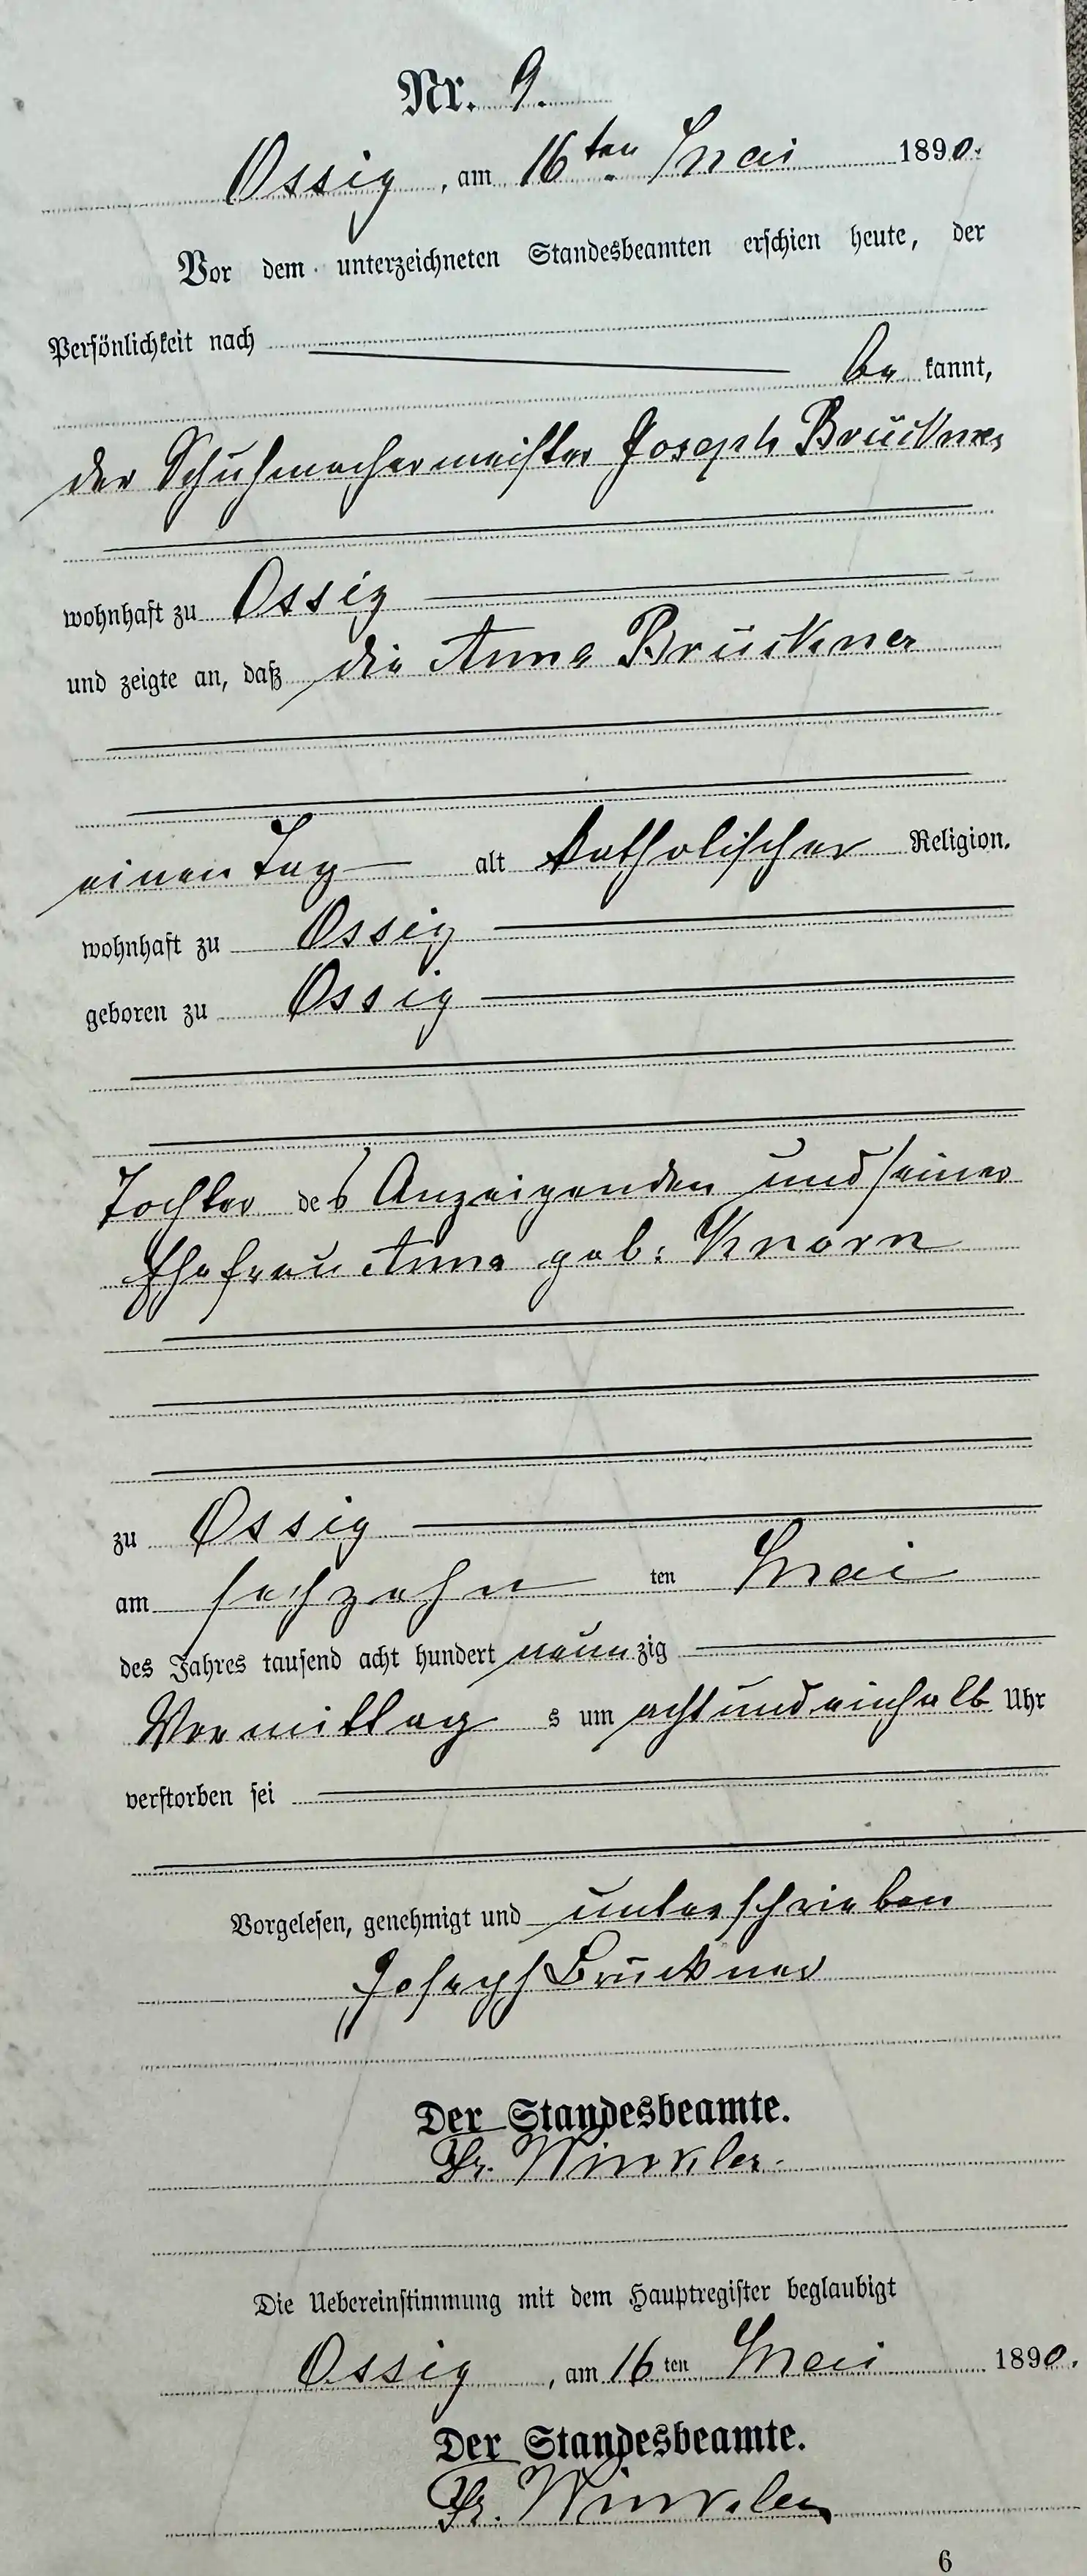 Nr. 9.
Ossig, am 16ten Mai 1890.
Vor dem unterzeichneten Standesbeamten erschien heute, der
Persönlichkeit nach
be kannt,
der Schuhmachermeister Joseph Brückner
wohnhaft zu Ossig
und zeigte an, daß die Anna Brückner
einen Tag alt katholischer Religion.
wohnhaft zu Ossig
geboren zu Ossig
Tochter des Anzeigenden und seiner
Ehefrau Anna geb. Knorn
zu Ossig
am sechzehn ten Mai
des Jahres tausend acht hundert neunzig
Vormittag s um acht und einhalb Uhr
verstorben sei
Vorgelesen, genehmigt und unterschrieben
Joseph Brückner
Der Standesbeamte.
Fr. Winkler.
Die Uebereinstimmung mit dem Hauptregister beglaubigt
Ossig, am 16ten Mai 1890.
Der Standesbeamte.
Fr. Winkler
6